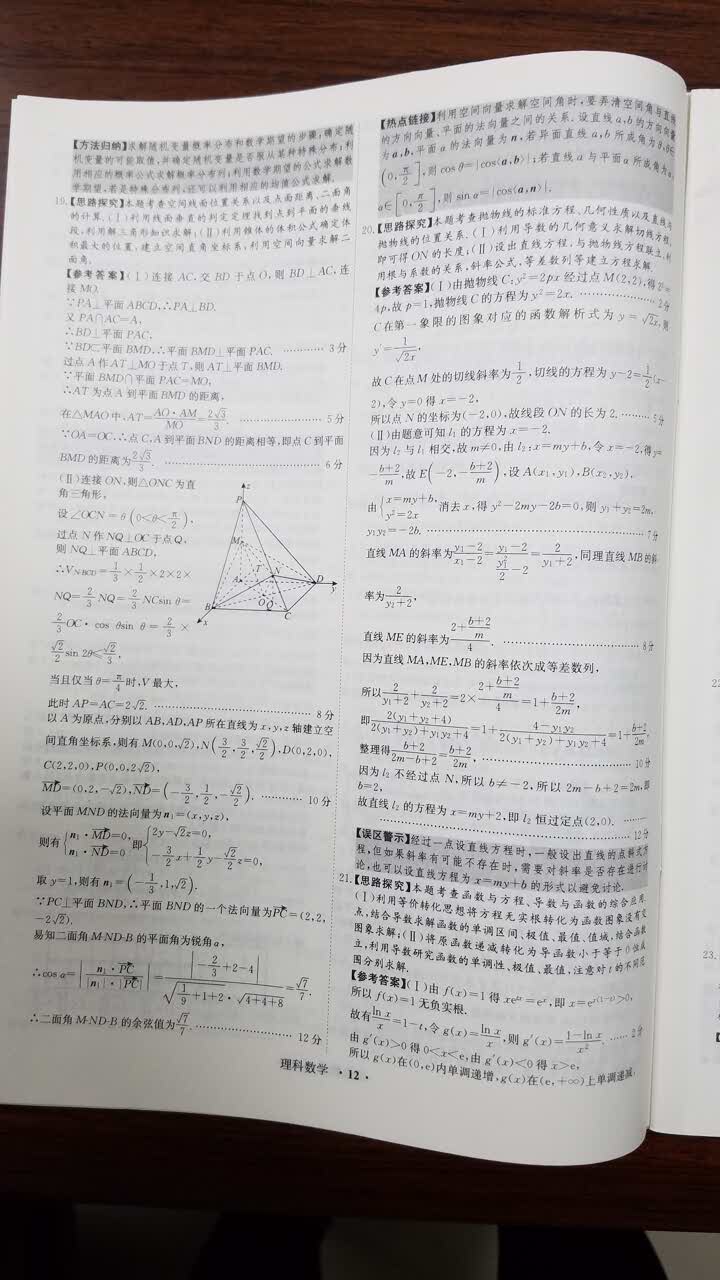 【方法归纳】求解随机变量概率分布和数学期望的步骤:确定随
机变量的可能取值,并确定随机变量是否服从某种特殊分布;利
用相应的概率公式求解概率分布列;利用数学期望的公式求解数
学期望,若是特殊分布列,还可以利用相应的均值公式求解.
19.【思路探究】本题考查空间线面位置关系以及点面距离、二面角
的计算.(Ⅰ)利用线面垂直的判定定理找到点到平面的垂线
段,利用解三角形知识求解;(Ⅱ)利用锥体的体积公式确定体
积最大的位置,建立空间直角坐标系,利用空间向量求解二
面角.
【参考答案】(Ⅰ)连接 AC,交 BD 于点 O,则 BD⊥AC,连
接 MO.
∵PA⊥平面 ABCD,∴PA⊥BD.
又 PA∩AC=A,
∴BD⊥平面 PAC.
∵BD⊂平面 BMD,∴平面 BMD⊥平面 PAC. ………… 3分
过点 A 作 AT⊥MO 于点 T,则 AT⊥平面 BMD.
∵平面 BMD∩平面 PAC=MO,
∴AT 为点 A 到平面 BMD 的距离,
在△MAO 中,AT=AO·AM/MO=2√3/3. ………… 5分
∵OA=OC,∴点 C,A 到平面 BND 的距离相等,即点 C 到平面
BMD 的距离为2√3/3. ………… 6分
(Ⅱ)连接 ON,则△ONC 为直
角三角形,
设∠OCN=θ(0<θ<π/2),
过点 N 作 NQ⊥OC 于点 Q,
则 NQ⊥平面 ABCD,
∴V_{N-BCD}=1/3×1/2×2×2×
NQ=2/3 NQ=2/3 NCsin θ=
2/3 OC·cos θsin θ=2/3×
√2/2 sin 2θ≤√2/3,
z
P
M
T
N
A
D
y
B
O
Q
C
x
当且仅当 θ=π/4时,V 最大,
此时 AP=AC=2√2. ………… 8分
以 A 为原点,分别以 AB,AD,AP 所在直线为 x,y,z 轴建立空
间直角坐标系,则有 M(0,0,√2),N(3/2,3/2,√2/2),D(0,2,0),
C(2,2,0),P(0,0,2√2),
MD=(0,2,-√2),ND=(-3/2,1/2,-√2/2). ………… 10分
设平面 MND 的法向量为 n₁=(x,y,z),
则有{n₁·MD=0, n₁·ND=0 即{2y-√2z=0, -3/2x+1/2y-√2/2z=0,
取 y=1,则有 n₁=(-1/3,1,√2).
∵PC⊥平面 BND,∴平面 BND 的一个法向量为PC=(2,2,
-2√2).
易知二面角 M-ND-B 的平面角为锐角 α,
∴cos α=|n₁·PC/|n₁|·|PC||=|-2/3+2-4|/√(1/9+1+2)·√(4+4+8)=√7/7.
∴二面角 M-ND-B 的余弦值为√7/7. ………… 12分
【热点链接】利用空间向量求解空间角时,要弄清空间角与直线
的方向向量、平面的法向量之间的关系.设直线 a,b 的方向向量
为 a,b,平面 α 的法向量为 n,若异面直线 a,b 所成角为 θ,θ∈
(0,π/2],则 cos θ=|cos⟨a,b⟩|;若直线 a 与平面 α 所成角为 α,
α∈[0,π/2],则 sin α=|cos⟨a,n⟩|.
20.【思路探究】本题考查抛物线的标准方程、几何性质以及直线与
抛物线的位置关系.(Ⅰ)利用导数的几何意义求解切线方程,
即可得 ON 的长度;(Ⅱ)设出直线方程,与抛物线方程联立,利
用根与系数的关系,斜率公式,等差数列等建立方程求解.
【参考答案】(Ⅰ)由抛物线 C:y²=2px 经过点 M(2,2),得 2²=
4p,故 p=1,抛物线 C 的方程为 y²=2x. ………… 2分
C 在第一象限的图象对应的函数解析式为 y=√2x,则
y′=1/√2x,
故 C 在点 M 处的切线斜率为1/2,切线的方程为 y-2=1/2(x-
2),令 y=0 得 x=-2,
所以点 N 的坐标为(-2,0),故线段 ON 的长为 2. ……… 5分
(Ⅱ)由题意可知 l₁ 的方程为 x=-2.
因为 l₂ 与 l₁ 相交,故 m≠0,由 l₂:x=my+b,令 x=-2,得 y=
-b+2/m,故 E(-2,-b+2/m),设 A(x₁,y₁),B(x₂,y₂),
由{x=my+b, y²=2x 消去 x,得 y²-2my-2b=0,则 y₁+y₂=2m,
y₁y₂=-2b. ………… 7分
直线 MA 的斜率为y₁-2/x₁-2=y₁-2/(y₁²/2-2)=2/y₁+2,同理直线 MB 的斜
率为2/y₂+2,
直线 ME 的斜率为(2+b+2/m)/4. ………… 8分
因为直线 MA,ME,MB 的斜率依次成等差数列,
所以2/y₁+2+2/y₂+2=2×(2+b+2/m)/4=1+b+2/2m,
即2(y₁+y₂+4)/2(y₁+y₂)+y₁y₂+4=1+4-y₁y₂/2(y₁+y₂)+y₁y₂+4=1+b+2/2m,
整理得b+2/2m-b+2=b+2/2m, ………… 10分
因为 l₂ 不经过点 N,所以 b≠-2,所以 2m-b+2=2m,即
b=2,
故直线 l₂ 的方程为 x=my+2,即 l₂ 恒过定点(2,0). ……
………… 12分
【误区警示】经过一点设直线方程时,一般设出直线的点斜式方
程,但如果斜率有可能不存在时,需要对斜率是否存在进行讨
论,也可以设直线方程为 x=my+b 的形式以避免讨论.
21.【思路探究】本题考查函数与方程、导数与函数的综合应用.
(Ⅰ)利用等价转化思想将方程无实根转化为函数图象没有交
点,结合导数求解函数的单调区间、极值、最值、值域,结合函数
图象求解;(Ⅱ)将原函数递减转化为导函数小于等于 0 恒成
立,利用导数研究函数的单调性、极值、最值,注意对 t 的不同范
围分别求解.
【参考答案】(Ⅰ)由 f(x)=1 得 xe^{tx}=e^x,即 x=e^{x(1-t)}>0,
所以 f(x)=1 无负实根.
故有ln x/x=1-t,令 g(x)=ln x/x,则 g′(x)=1-ln x/x². …… 2分
由 g′(x)>0 得 0<x<e,由 g′(x)<0 得 x>e,
所以 g(x)在(0,e)内单调递增,g(x)在(e,+∞)上单调递减.
理科数学 ·12·
22
23.